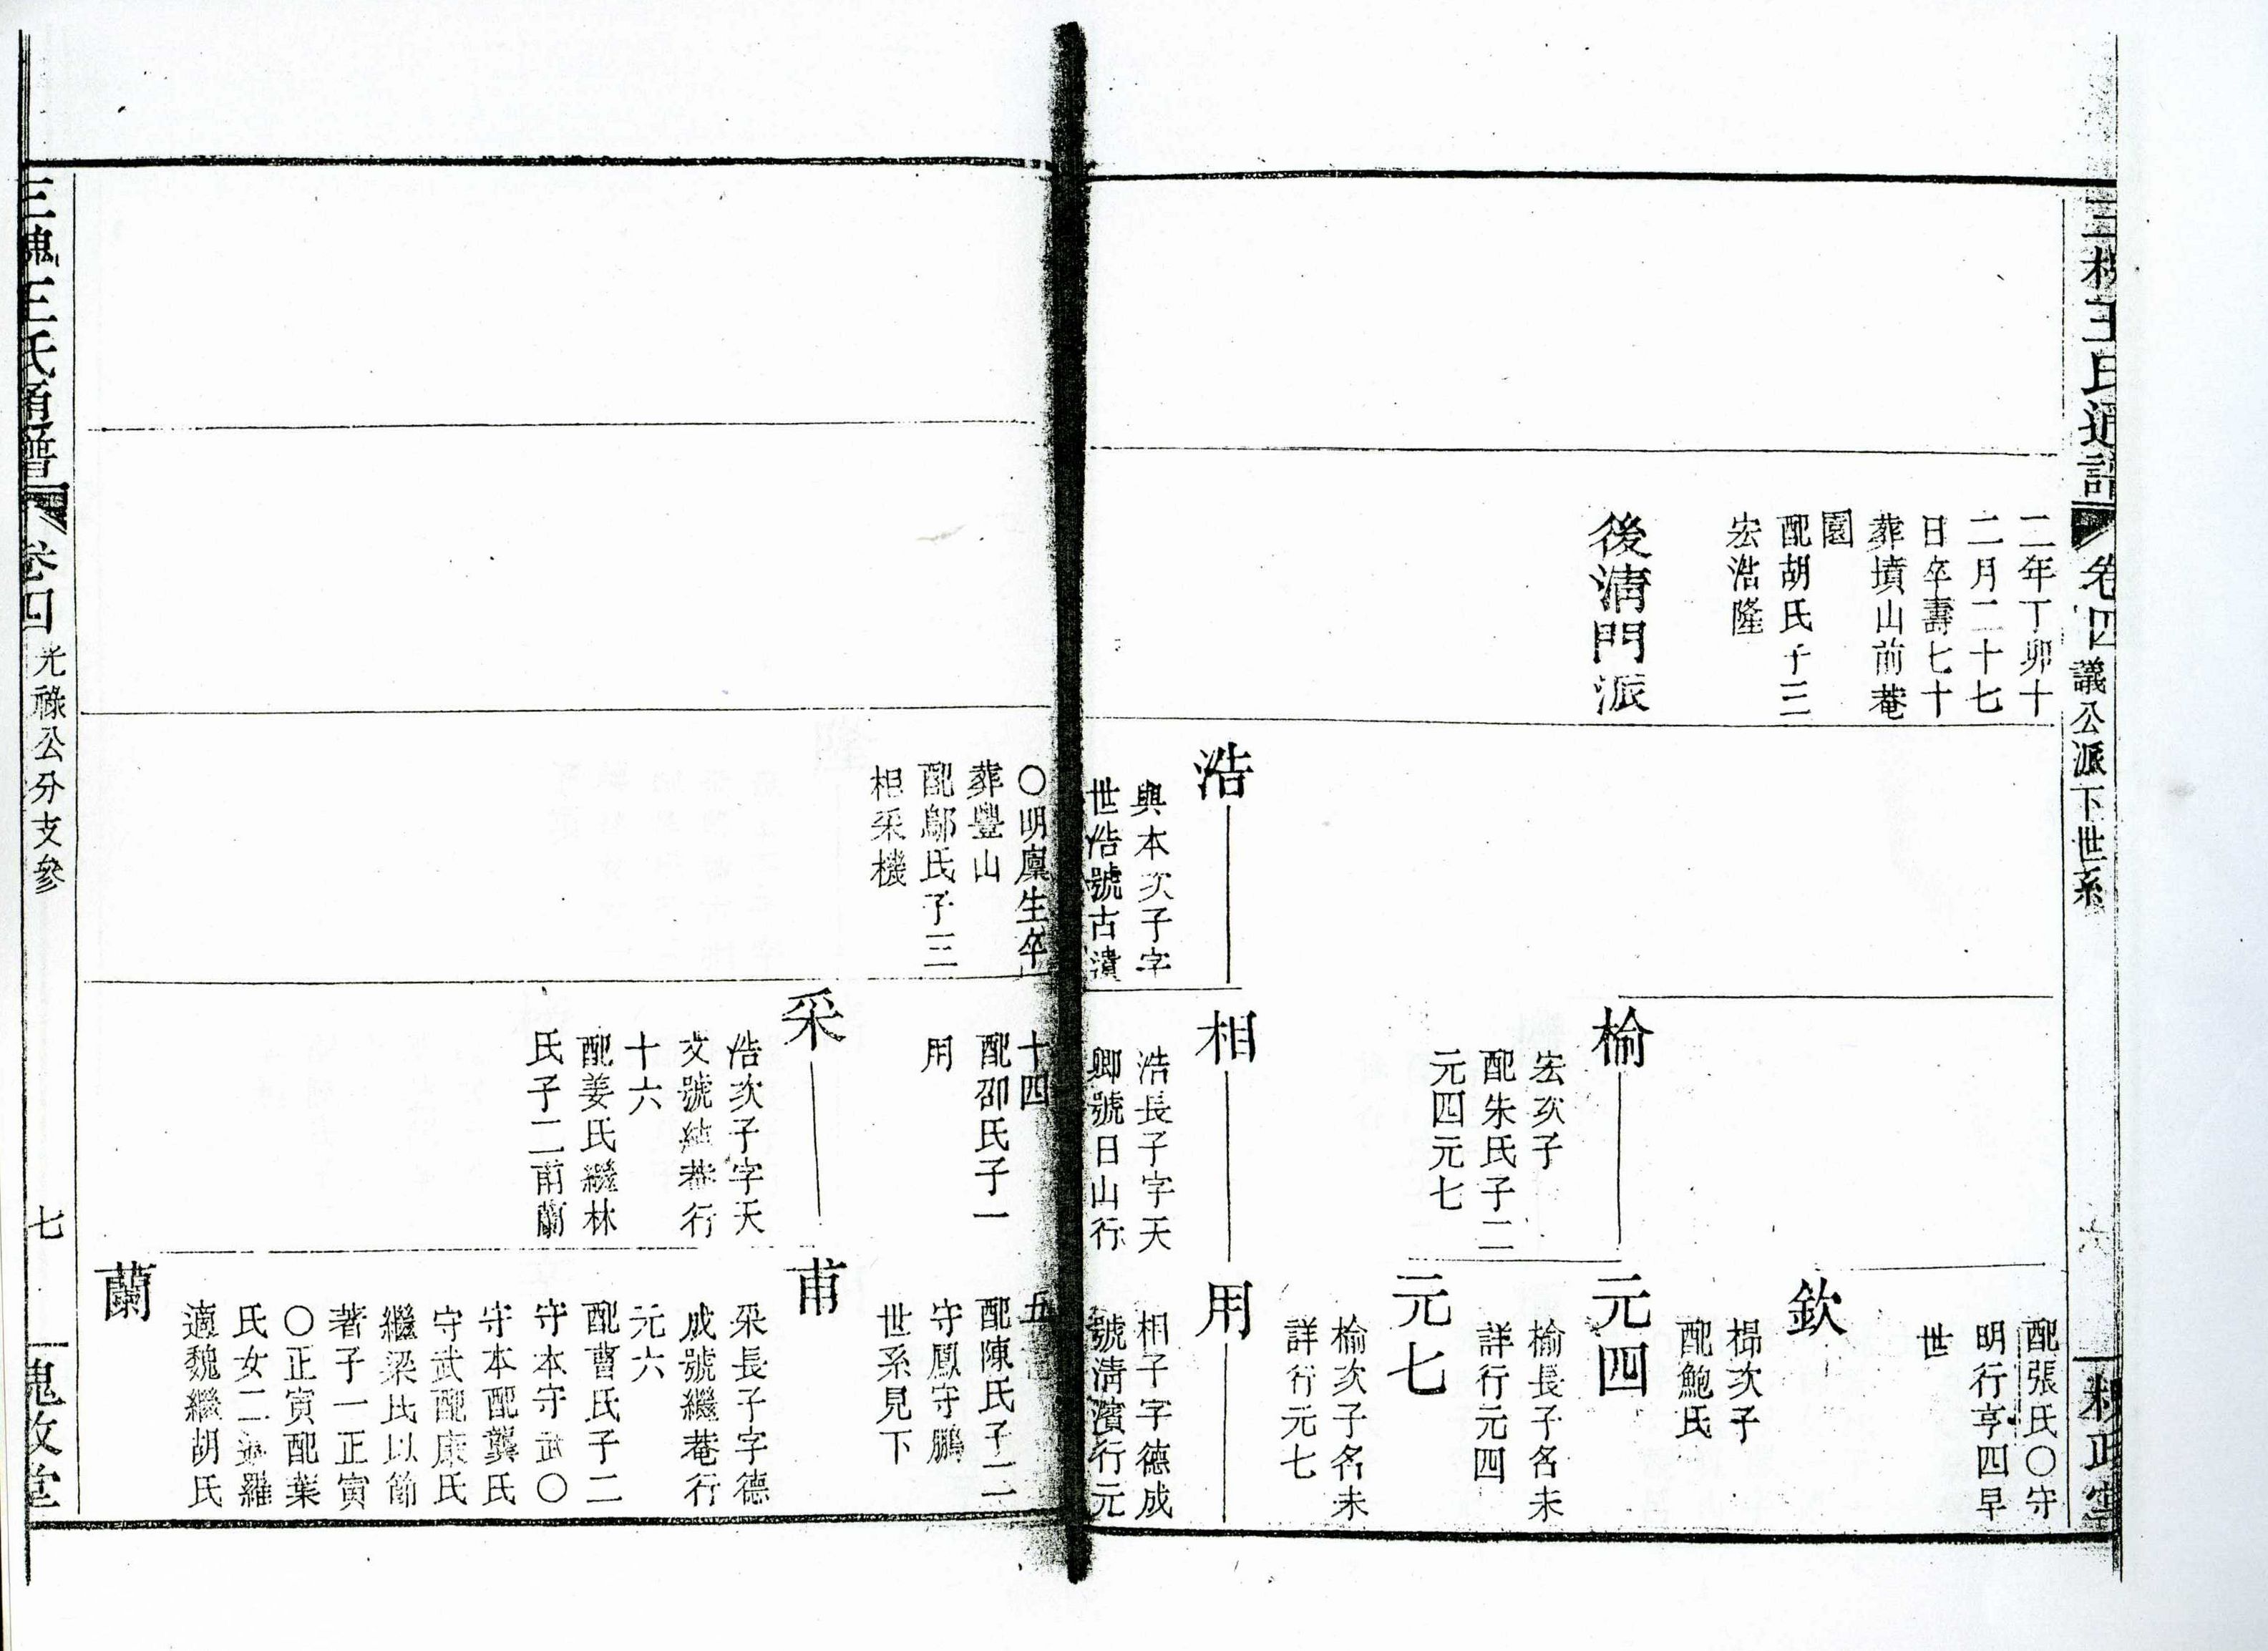 三槐王氏通譜
卷四
議公派下世系
二年丁卯十
二月二十七
日卒壽七十
葬墳山前菴
園
配胡氏子三
宏浩隆
後淸門派
配張氏〇守
明行亨四早
世
欽
㮛次子
配鮑氏
楡
宏次子
配朱氏子二
元四元七
元四
楡長子名未
詳行元四
元七
楡次子名未
詳行元七
浩
與本次子字
世浩號古瀆
〇明廩生卒
葬豐山
配鄔氏子三
相采機
相
浩長子字天
卿號日山行
十四
配邵氏子一
用
用
相子字德成
號淸濱行元
五
配陳氏子二
守鳳守鵬
世系見下
采
浩次子字天
文號純菴行
十六
配姜氏繼林
氏子二甫蘭
甫
采長子字德
成號繼菴行
元六
配曹氏子二
守本守武〇
守本配龔氏
守武配康氏
繼梁氏以節
著子一正寅
〇正寅配葉
氏女二適羅
適魏繼胡氏
蘭
三槐王氏通譜
卷四
光祿公分支參
七
槐政堂